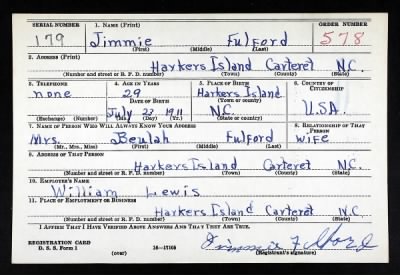 SERIAL NUMBER 1. NAME (Print) ORDER NUMBER
179 Jimmie Fulford 578
(First) (Middle) (Last)
2. ADDRESS (Print)
Harkers Island Carteret N.C.
(Number and street or R. F. D. number) (Town) (County) (State)
3. TELEPHONE 4. AGE IN YEARS 5. PLACE OF BIRTH 6. COUNTRY OF CITIZENSHIP
none 29 Harkers Island
DATE OF BIRTH (Town or county)
July 22 1911 N.C. U.S.A.
(Exchange) (Number) (Mo.) (Day) (Yr.) (State or country)
7. NAME OF PERSON WHO WILL ALWAYS KNOW YOUR ADDRESS 8. RELATIONSHIP OF THAT PERSON
Mrs. Beulah Fulford wife
(Mr., Mrs., Miss) (First) (Middle) (Last)
9. ADDRESS OF THAT PERSON
Harkers Island Carteret N.C.
(Number and street or R. F. D. number) (Town) (County) (State)
10. EMPLOYER'S NAME
William Lewis
11. PLACE OF EMPLOYMENT OR BUSINESS
Harkers Island Carteret N.C.
(Number and street or R. F. D. number) (Town) (County) (State)
I AFFIRM THAT I HAVE VERIFIED ABOVE ANSWERS AND THAT THEY ARE TRUE.
REGISTRATION CARD
D. S. S. Form 1 (over) 16—17105 Jimmie Fulford
(Registrant's signature)